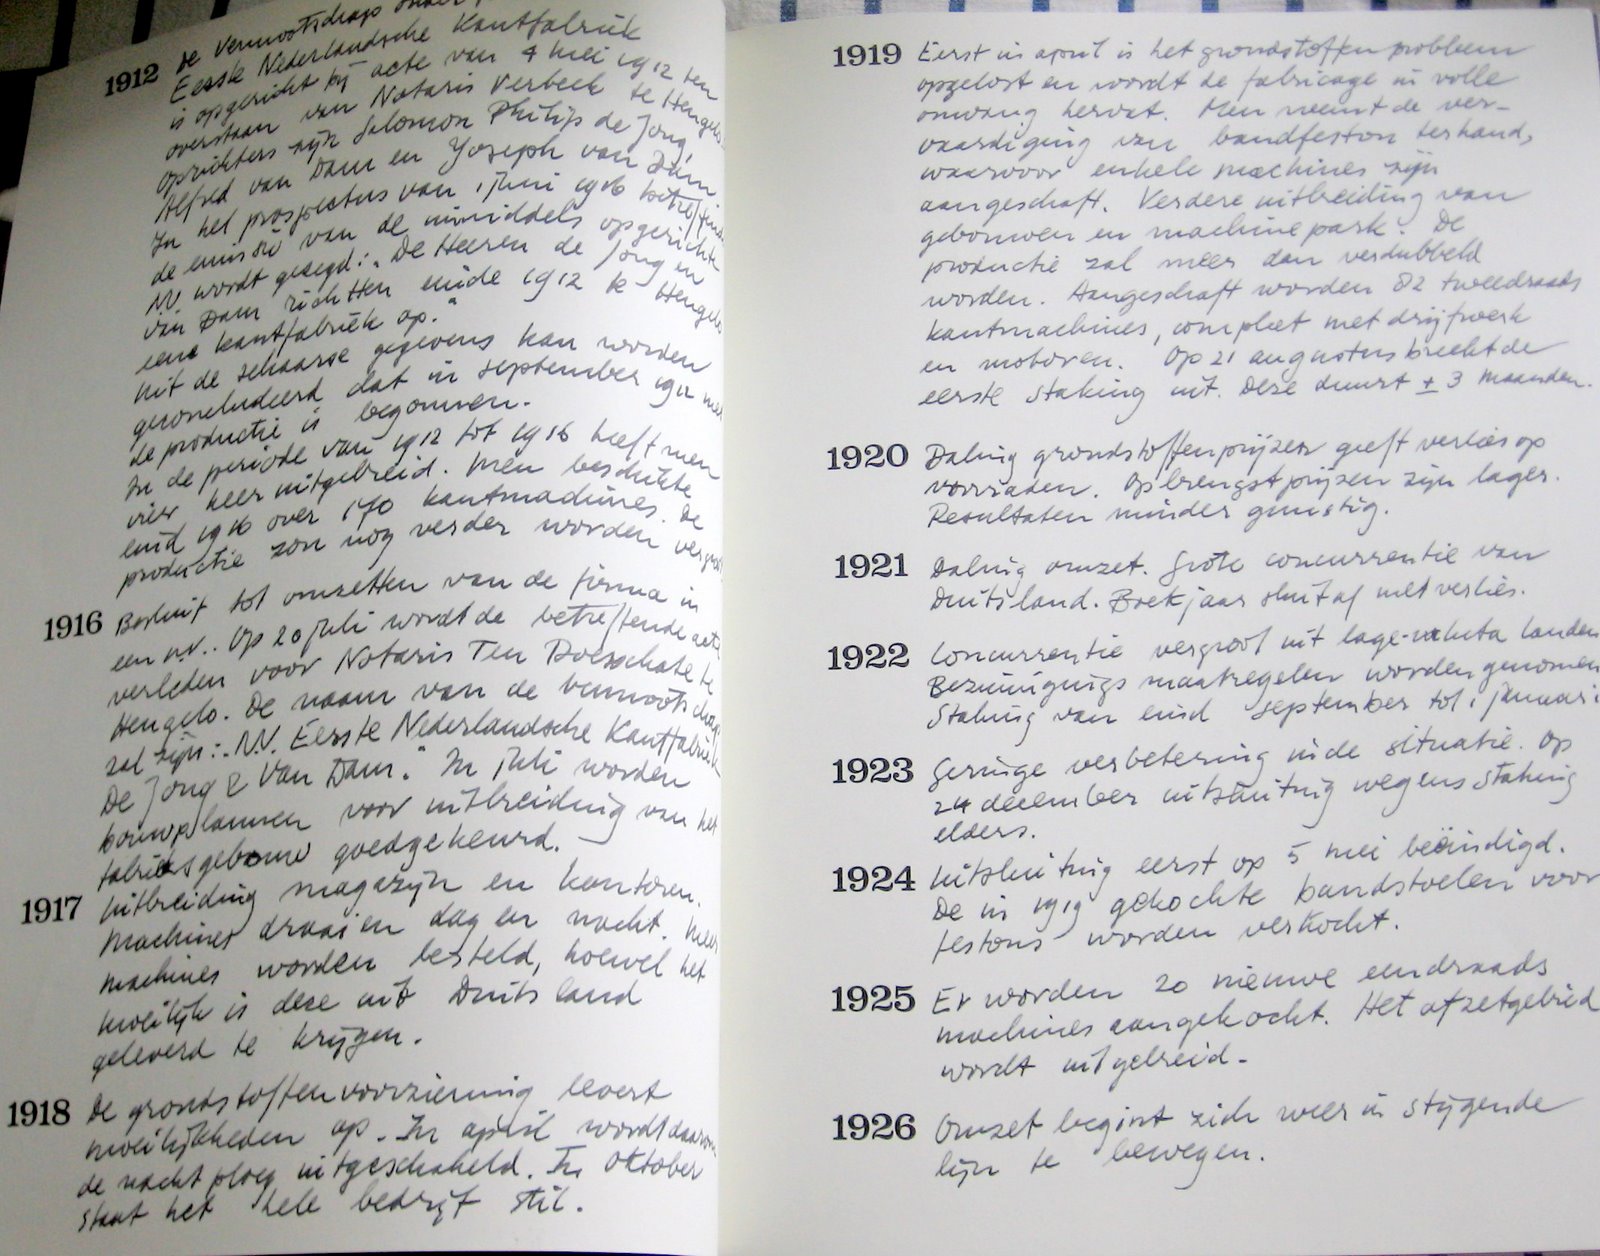 1912 de Vennootschap onder
Eerste Nederlandsche Kantfabriek
is opgericht bij acte van 4 mei 1912 ten
overstaan van Notaris Verbeek te Hengelo
oprichters zijn Salomon Philip de Jong,
Alfred van Dam en Joseph van Dam
In het prospectus van 1 juni 1916 betreffende
de emissie van de inmiddels opgerichte
N.V. wordt gezegd: „De Heeren de Jong en
van Dam richtten einde 1912 te Hengelo
eene kantfabriek op."
Uit de schaarse gegevens kan worden
geconcludeerd dat in september 1912 met
de productie is begonnen.
In de periode van 1912 tot 1916 heeft men
vier keer uitgebreid. Men beschikte
eind 1916 over 170 kantmachines. De
productie zou nog verder worden vergroot
1916 Besluit tot omzetten van de firma in
een n.v.. Op 20 juli wordt de betreffende acte
verleden voor Notaris Ten Doesschate te
Hengelo. De naam van de vennootschap
zal zijn: „N.V. Eerste Nederlandsche Kantfabriek
De Jong & Van Dam." In juli worden
bouwplannen voor uitbreiding van het
fabrieksgebouw goedgekeurd.
1917 Uitbreiding magazijn en kantoren.
Machines draaien dag en nacht. Meer
machines worden besteld, hoewel het
moeilijk is deze uit Duitsland
geleverd te krijgen.
1918 De grondstoffenvoorziening levert
moeilijkheden op. In april wordt daarom
de nachtploeg uitgeschakeld. In oktober
staat het hele bedrijf stil.
1919 Eerst in april is het grondstoffenprobleem
opgelost en wordt de fabricage in volle
omvang hervat. Men neemt de ver-
vaardiging van bandfeston ter hand,
waarvoor enkele machines zijn
aangeschaft. Verdere uitbreiding van
gebouwen en machinepark. De
productie zal meer dan verdubbeld
worden. Aangeschaft worden 82 tweedraads
kantmachines, compleet met drijfwerk
en motoren. Op 21 augustus breekt de
eerste staking uit. Deze duurt ± 3 maanden.
1920 Daling grondstoffenprijzen geeft verlies op
voorraden. Opbrengstprijzen zijn lager.
Resultaten minder gunstig.
1921 Daling omzet. Grote concurrentie van
Duitsland. Boekjaar sluit af met verlies.
1922 Concurrentie vergroot uit lage-valuta landen
Bezuinigings maatregelen worden genomen
Staking van eind september tot 1 januari
1923 Geringe verbetering in de situatie. Op
24 december uitsluiting wegens staking
elders.
1924 Uitsluiting eerst op 5 mei beëindigd.
De in 1919 gekochte bandstoelen voor
festons worden verkocht.
1925 Er worden 20 nieuwe eendraads
machines aangekocht. Het afzetgebied
wordt uitgebreid.
1926 Omzet begint zich weer in stijgende
lijn te bewegen.